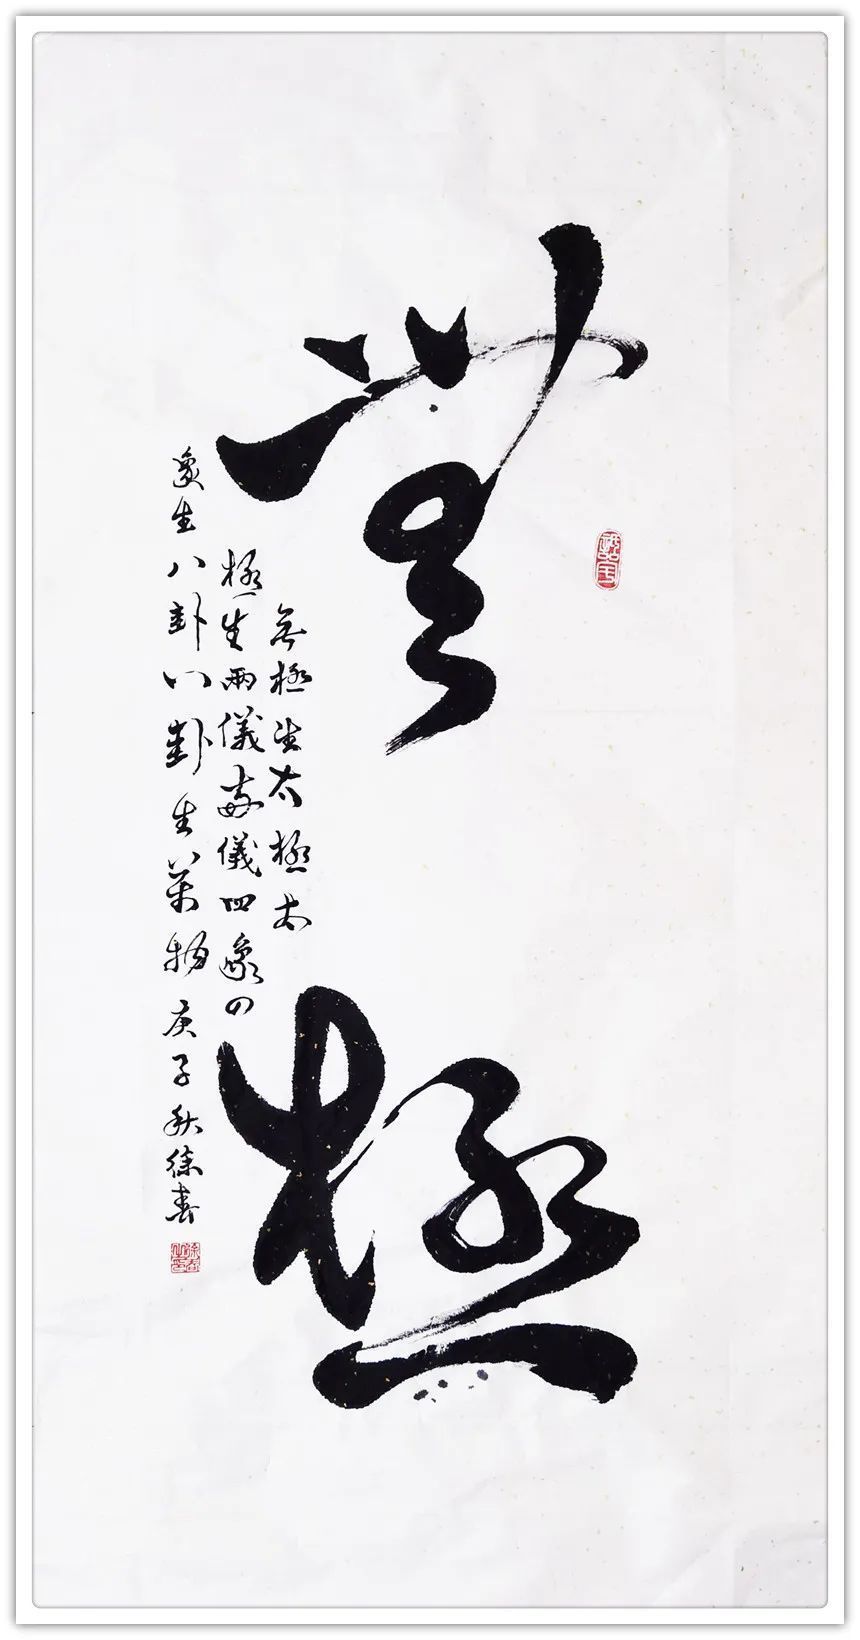 無極
無極生太極太
極生兩儀兩儀四象四
象生八卦八卦生萬物庚子秋徐春